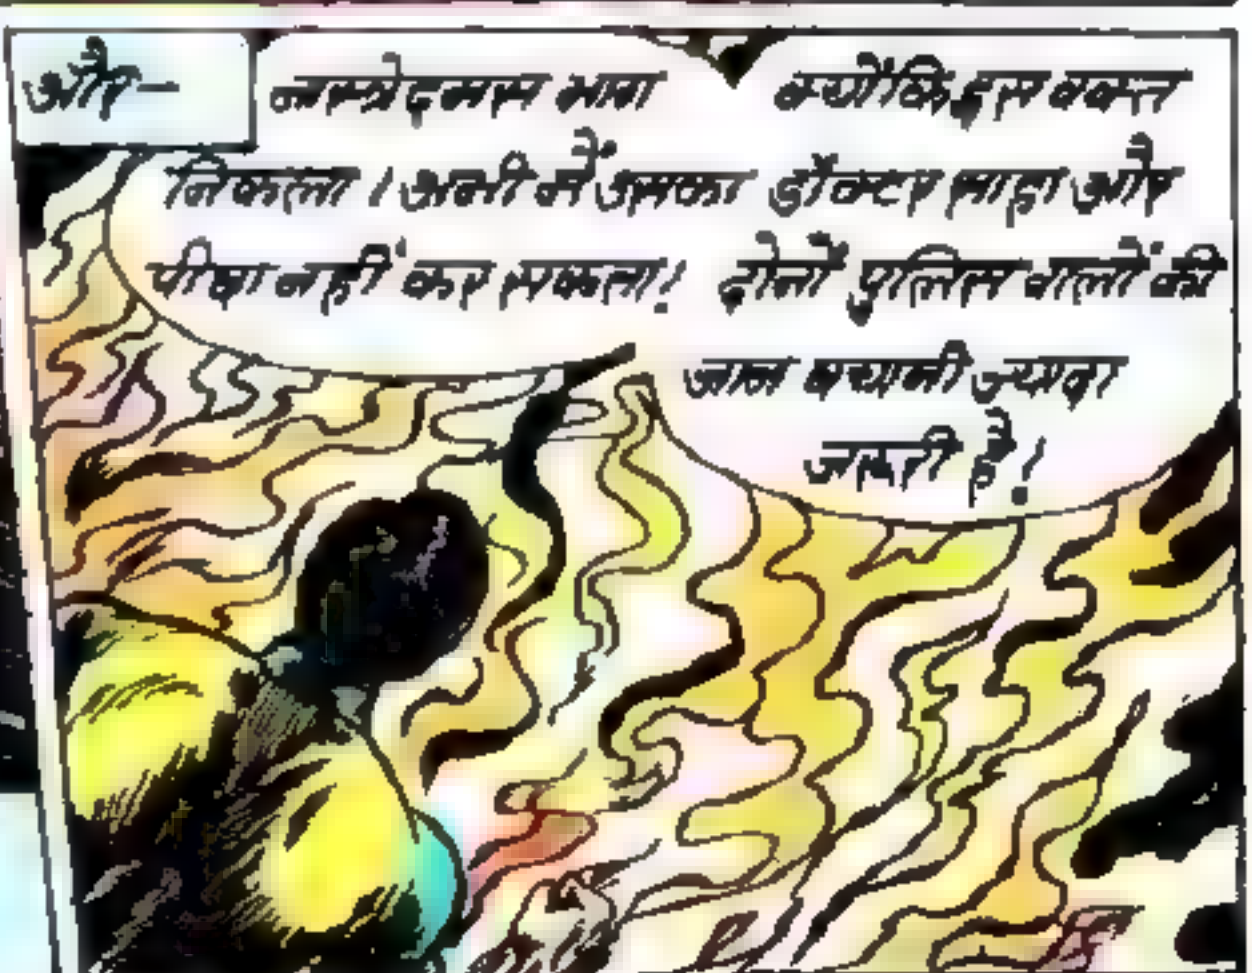 और-
नास्त्रेदमस भाग
निकला । अभी मैं उसका
पीछा नहीं कर सकता!
क्योंकि इस वक्त
डॉक्टर साहा और
दोनों पुलिस वालों की
जान बचानी ज्यादा
जरूरी है!